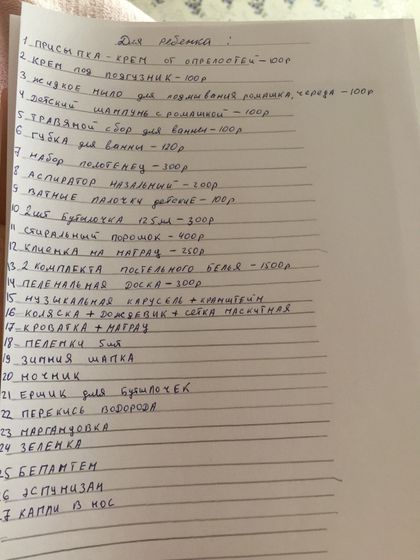 Для ребенка :
1 ПРИСЫПКА - КРЕМ ОТ ОПРЕЛОСТЕЙ - 100р
2 КРЕМ ПОД ПОДГУЗНИК - 100р
3 ЖИДКОЕ МЫЛО для ПОДМЫВАНИЯ РОМАШКА, ЧЕРЕДА - 100р
4 ДЕТСКИЙ ШАМПУНЬ С РОМАШКОЙ - 100р
5 ТРАВЯНОЙ СБОР для ВАННЫ - 100р
6 ГУБКА для ВАННЫ - 120р
7 НАБОР ПОЛОТЕНЕЦ - 300р
8 АСПИРАТОР НАЗАЛЬНЫЙ - 200р
9 ВАТНЫЕ ПАЛОЧКИ ДЕТСКИЕ - 100р
10 2шт БУТЫЛОЧКА 125мл - 300р
11 СТИРАЛЬНЫЙ ПОРОШОК - 400р
12 КЛИЕНКА НА МАТРАЦ - 250р
13 2 КОМПЛЕКТА ПОСТЕЛЬНОГО БЕЛЬЯ - 1500р
14 ПЕЛЕНАЛЬНАЯ ДОСКА - 300р
15 МУЗЫКАЛЬНАЯ КАРУСЕЛЬ + КРАНШТЕЙН
16 КОЛЯСКА + ДОЖДЕВИК + СЕТКА МАСКИТНАЯ
17 - КРОВАТКА + МАТРАЦ
18 - ПЕЛЕНКИ 5шт
19 ЗИМНИЯ ШАПКА
20 НОЧНИК
21 ЕРШИК для БУТЫЛОЧЕК
22 ПЕРЕКИСЬ ВОДОРОДА
23 МАРГАНЦОВКА
24 ЗЕЛЕНКА
25 БЕПАНТЕН
26 ЭСПУМИЗАН
27 КАПЛИ В НОС